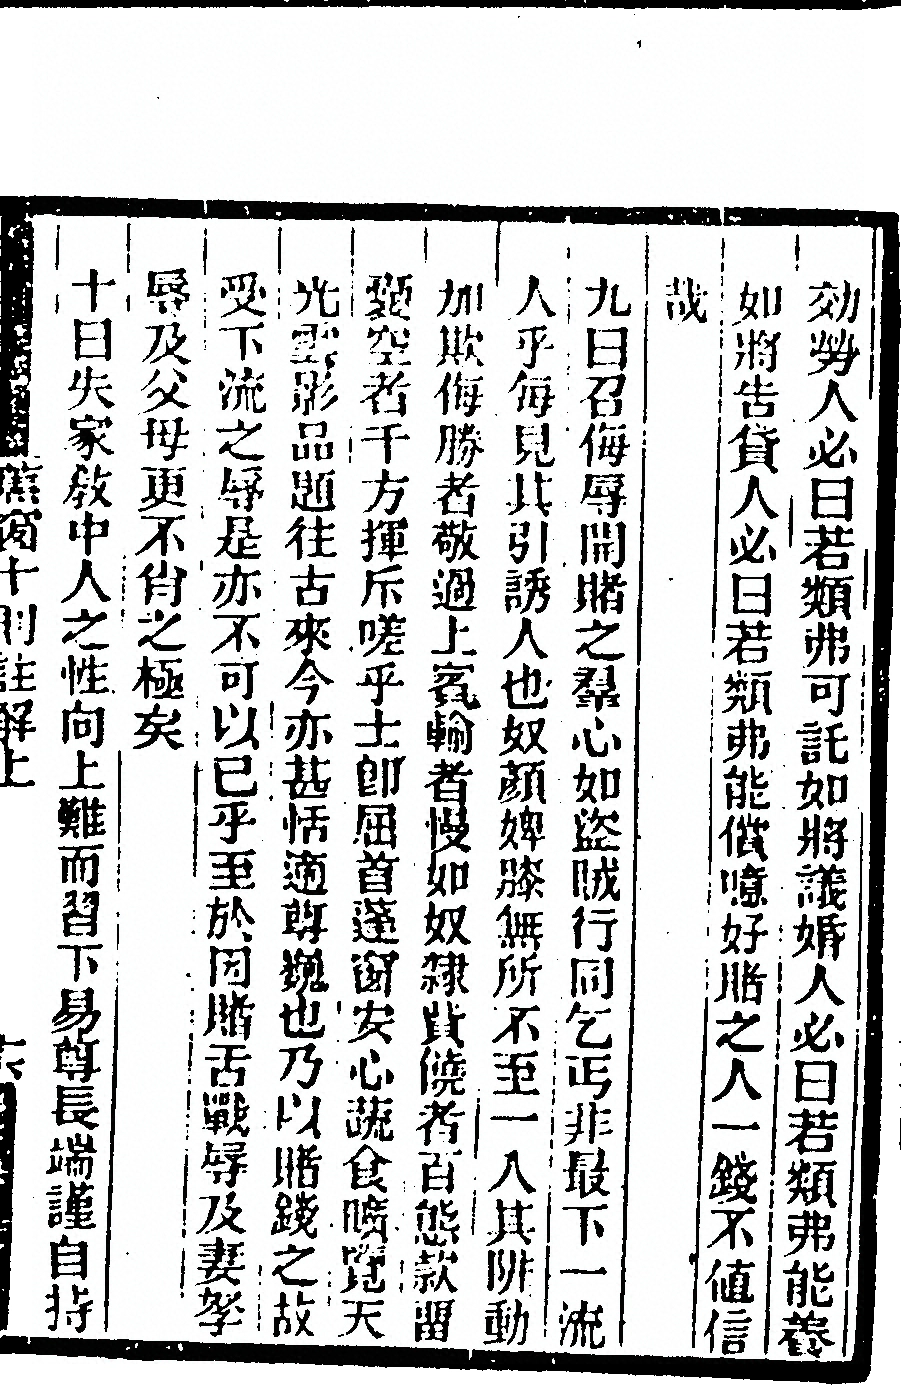 効勞人必曰若類弗可託如將議婚人必曰若類弗能養
如將告貸人必曰若類弗能償噫好賭之人一錢不値信
哉
九曰召侮辱開賭之羣心如盜賊行同乞丐非最下一流
人乎每見其引誘人也奴顏婢膝無所不至一入其阱動
加欺侮勝者敬過上賓輸者慢如奴隸貲饒者百態款留
槖空者千方揮斥嗟乎士卽屈首蓬窗安心蔬食曠覽天
光雲影品題往古來今亦甚恬適尊巍也乃以賭錢之故
受下流之辱是亦不可以已乎至於因賭舌戰辱及妻孥
辱及父母更不肖之極矣
十曰失家敎中人之性向上難而習下易尊長端謹自持
蕉窗十則註解上
六